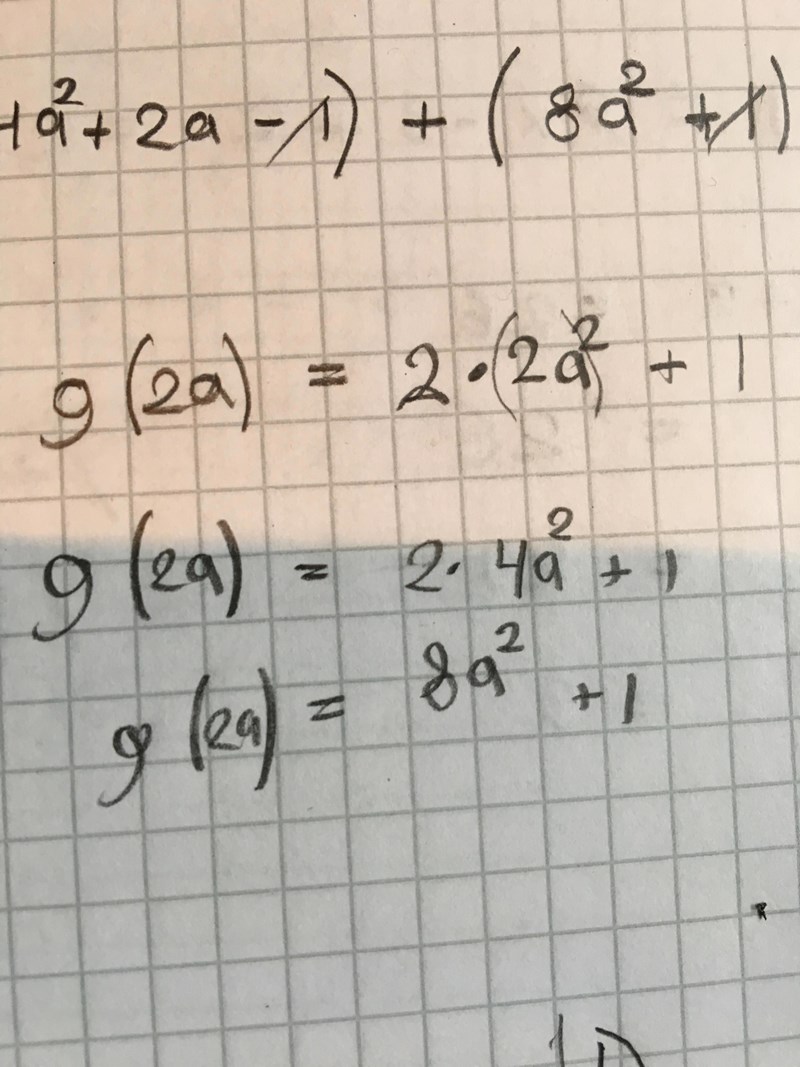 4a² + 2a - 1) + (8a² + 1)
g(2a) = 2·(2a)² + 1
g(2a) = 2·4a² + 1
g(2a) = 8a² + 1